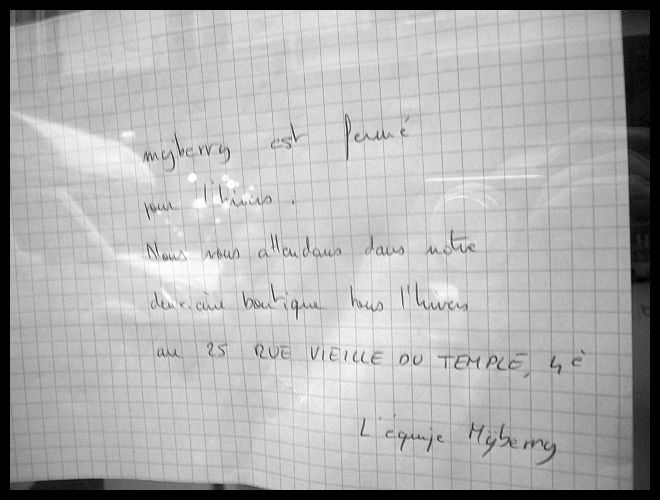 myberry est fermé
pour l'hivers.
Nous vous attendons dans notre
deuxième boutique tous l'hivers
au 25 RUE VIEILLE DU TEMPLE, 4è
L'équipe Myberry